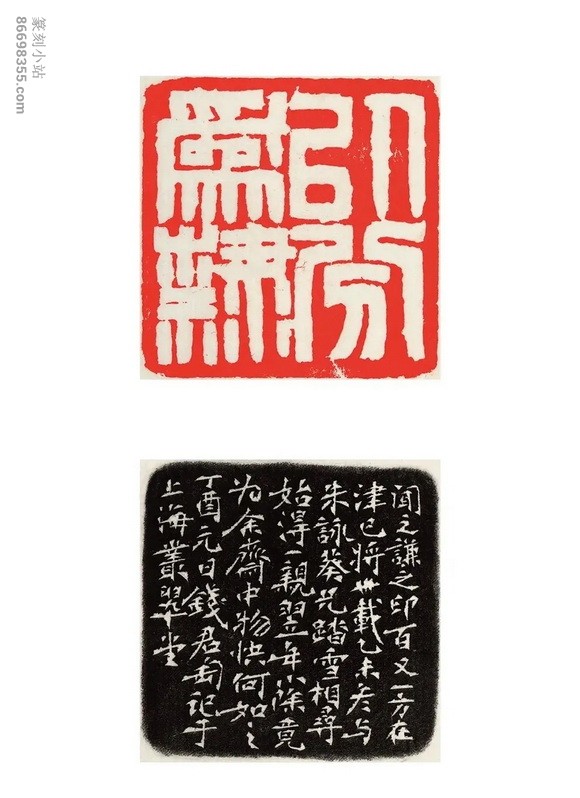 篆刻小站
86698355.com
以分
為隸
聞之謙之印百又一方在
津已將卅載乙未冬与
朱詠葵兄踏雪相尋
始得一親翌年小除竟
为余齋中物快何如之
丁酉元日錢君匋記于
上海叢翠堂